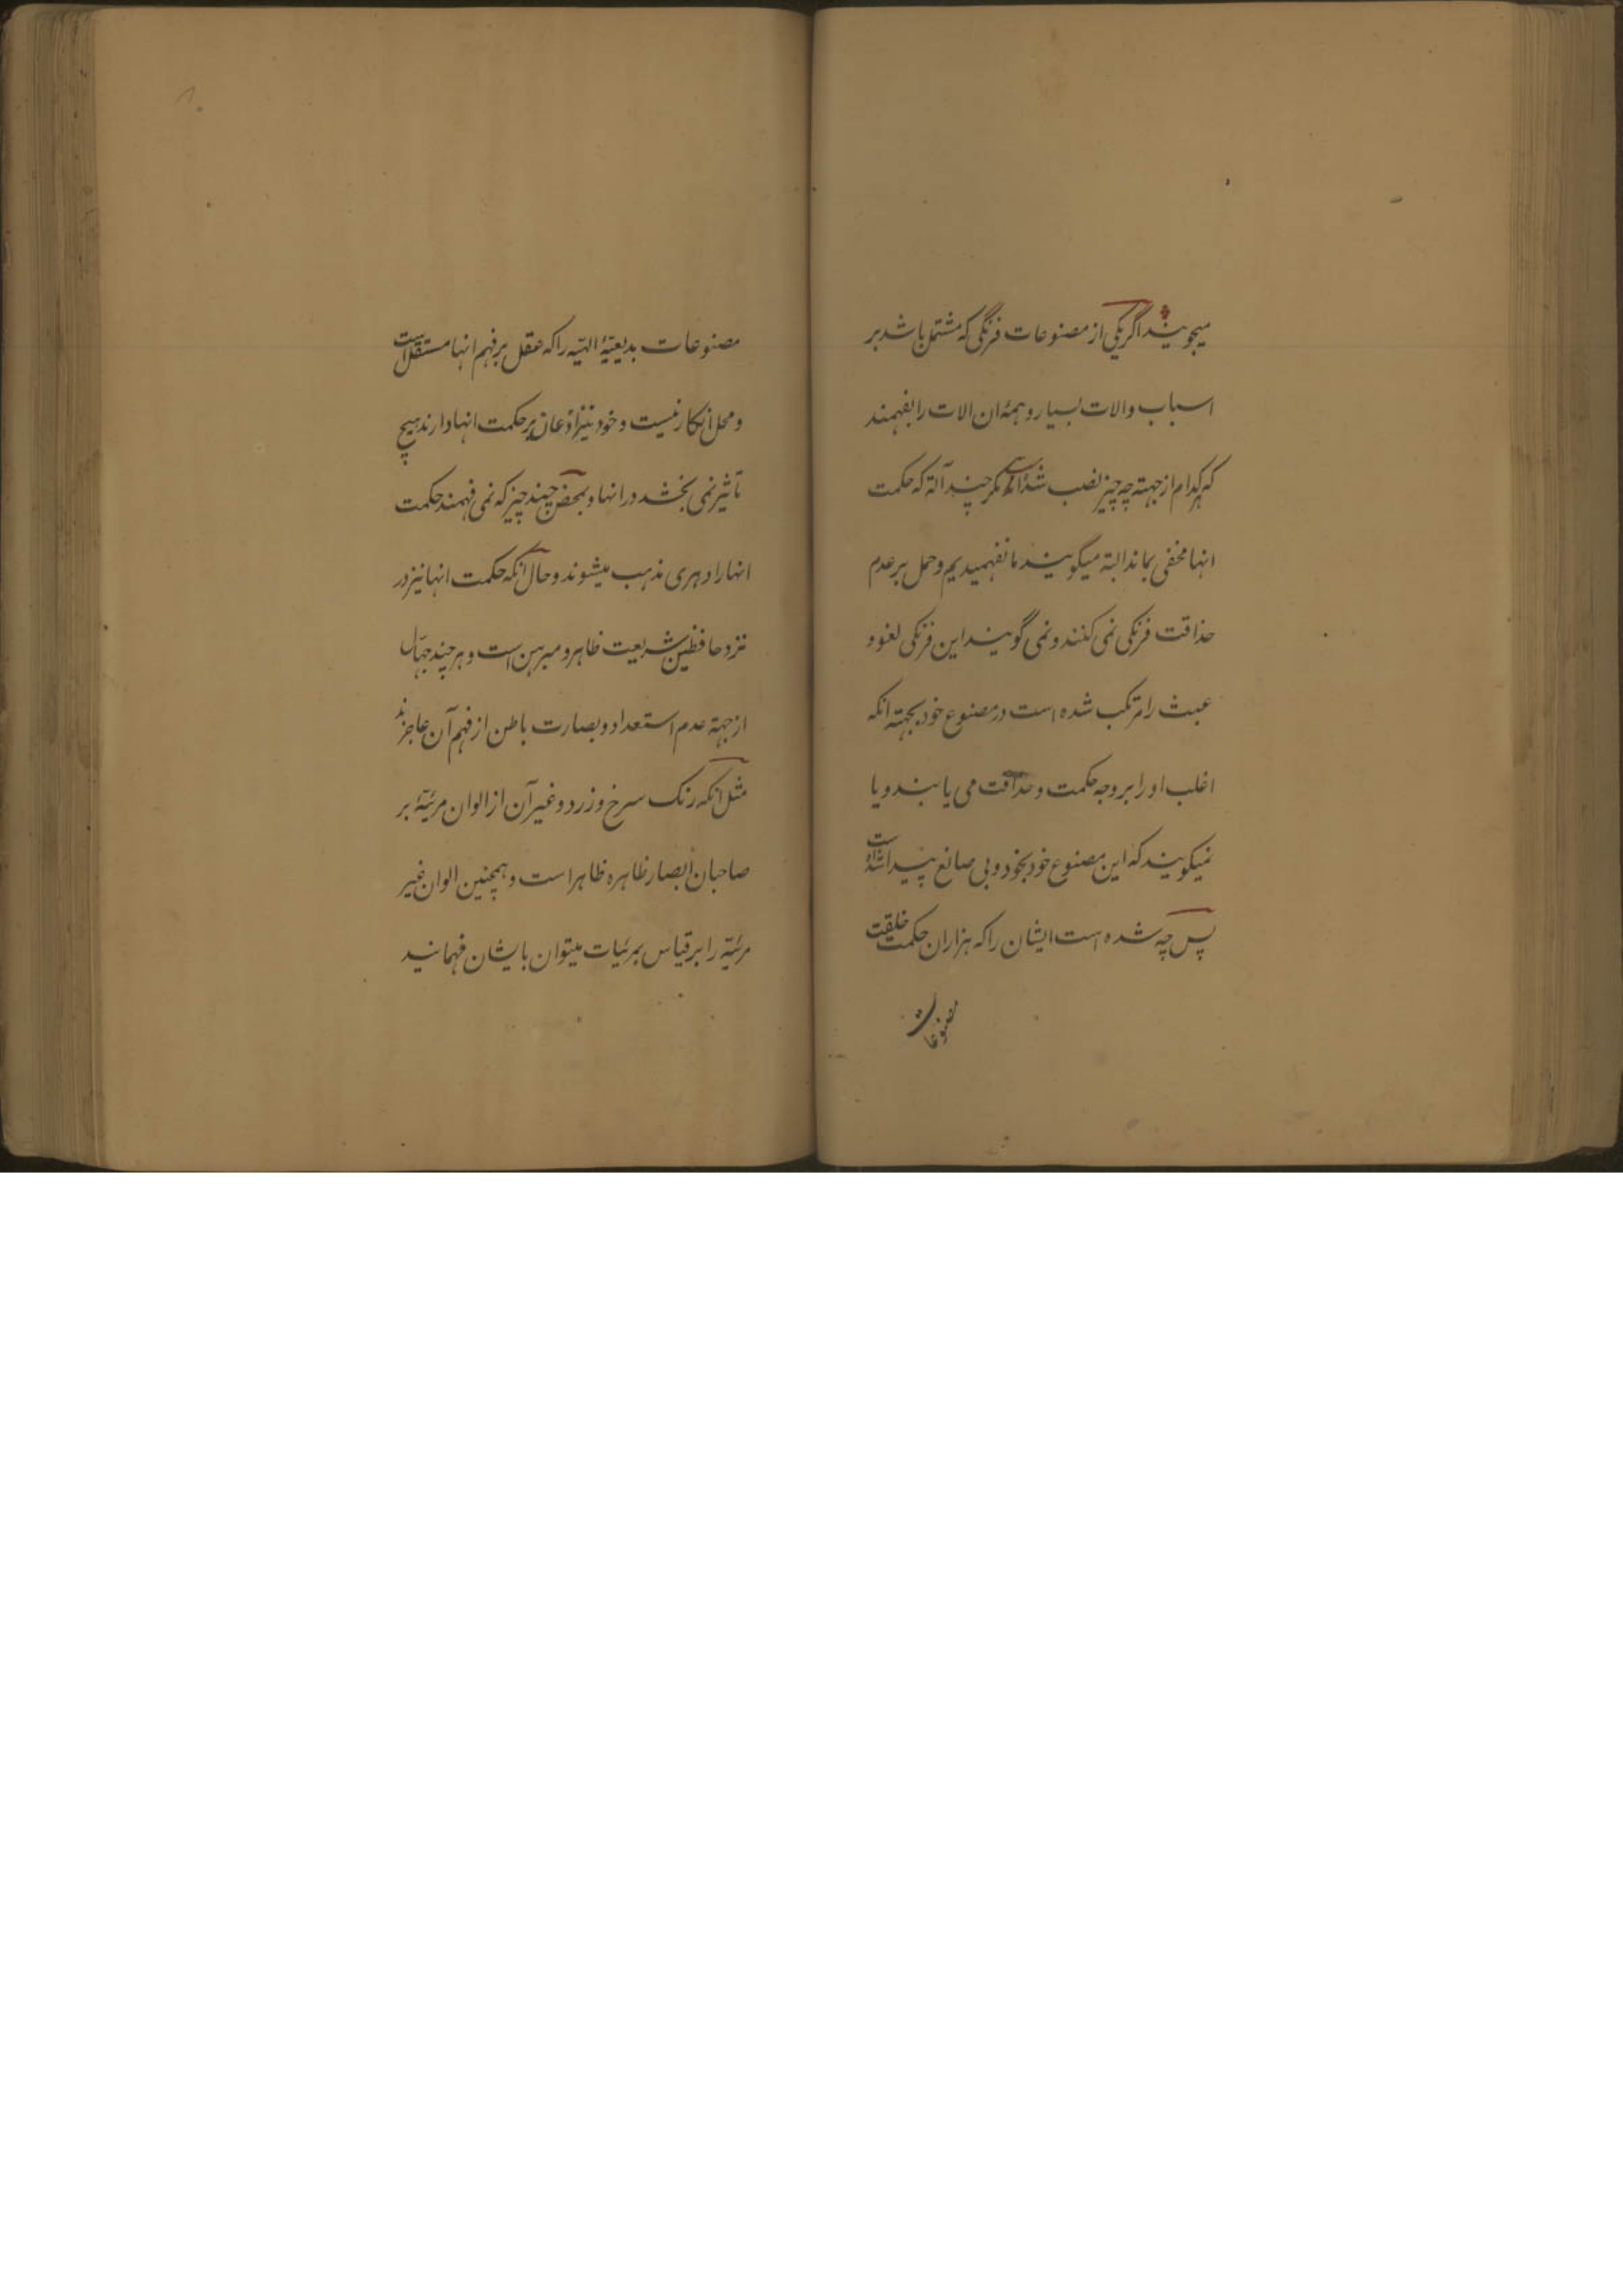 میجویند اگر یکی از مصنوعات فرنگی که مشتمل باشد بر
اسباب والات بسیار و همه ان الات را بفهمند
که هر کدام از جهته چه چیز نصب شده است مگر چند آلة که حکمت
انها مخفی بماند البته میگویند ما نفهمیدیم و حمل بر عدم
حذاقت فرنکی نمی کنند و نمی گویند این فرنکی لغو و
عبث را مرتکب شده است در مصنوع خود بجهته انکه
اغلب او را بر وجه حکمت و حذاقت می یابند و یا
نمیکویند که این مصنوع خود بخود و بی صانع پیدا شده است
پس چه شده است ایشان را که هزاران حکمت خلقت
مصنوعات
مصنوعات بدیعیّهٔ الهیّه را که عقل بر فهم انها مستقل است
و محل انکار نیست و خود نیز اذعان بر حکمت انها دارند هیچ
تأثیر نمی بخشد در انها و بمحض چند چیز که نمی فهمند حکمت
انها را دهری مذهب میشوند و حال آنکه حکمت انها نیز در
نزد حافظین شریعت ظاهر و مبرهن است و هر چند جهّال
از جهة عدم استعداد و بصارت باطن از فهم آن عاجزند
مثل آنکه رنک سرخ و زرد و غیر آن از الوان مرئیّهٔ بر
صاحبان ابصار ظاهره ظاهر است و همچنین الوان غیر
مرئیّه را بر قیاس بمرئیات میتوان بایشان فهمانید